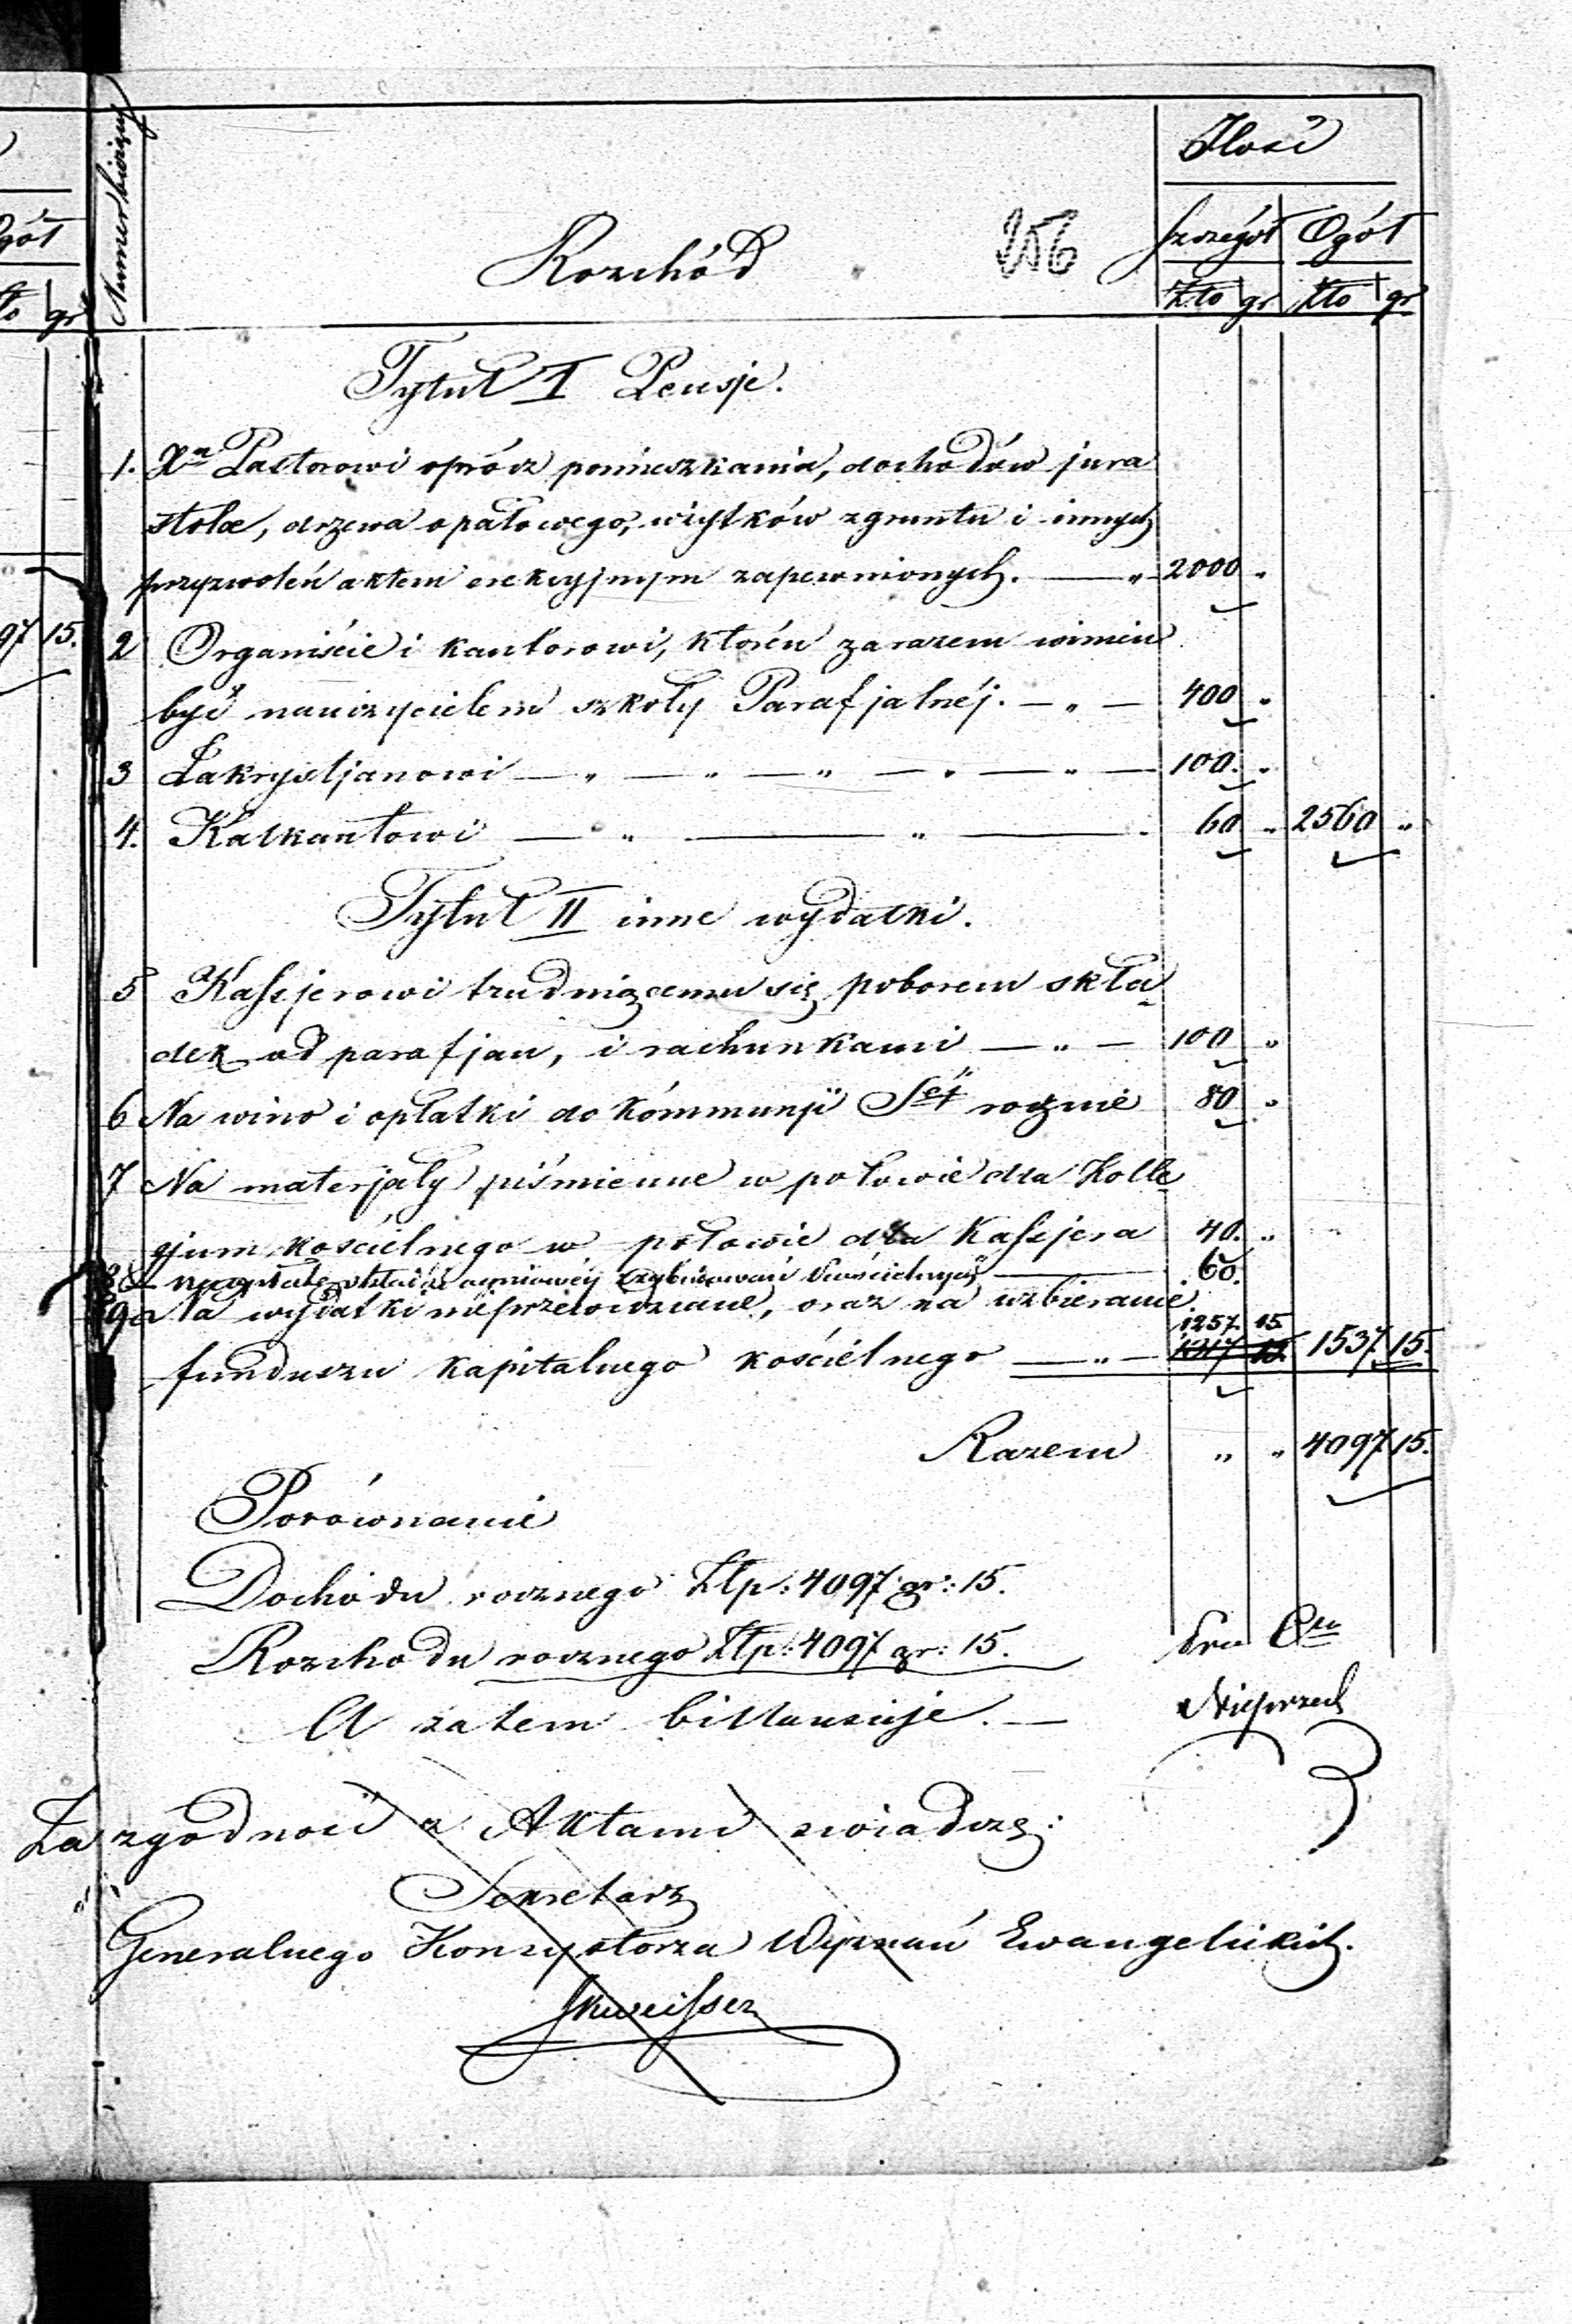 Numer bieżący
Rozchód
256
Ilość
Szczegół Ogół
Złto gr Złto gr
gr
Tytuł I Pensje.
1. Xu Pastorowi oprócz pomieszkania, dochodów jura
stolæ, drzewa opałowego, użytków z gruntu i innych
przyzwoleń aktem erekcyjnym zapewnionych. — " 2000 "
97 15.
2 Organiście i kantorowi, któren zarazem winien
być nauczycielem szkoły Parafjalnéj. — " — 400 "
3 Zakrystjanowi — " — " — " — " — " — 100. "
4. Kalkantowi — " — " — 60 " 2560 "
Tytuł II inne wydatki.
5 Kassjerowi trudniącemu się poborem skła
dek od parafjan, i rachunkami — " — 100 "
6 Na wino i opłatki do kómmunji Sej rocznie 80 "
7 Na materjały piśmienne w połowie dla Kolle
gjum kościelnego w połowie dla Kassjera 40. "
8 na opłatę składki ogniowéj zabudowań kościelnych — 60.
9 Na wydatki nieprzewidziane, oraz na uzbieranie
1257. 15.
funduszu kapitalnego kościelnego — " — 1317 15. 1537 15.
Razem " " 4097 15.
Porównanie
Dochodu rocznego Złp: 4097 gr: 15.
Rozchodu rocznego Złp: 4097 gr: 15.
A zatem billansuje. —
Za zgodność z Aktami świadczę:
Sekretarz
Generalnego Konsystorza Wyznań Ewangelickich.